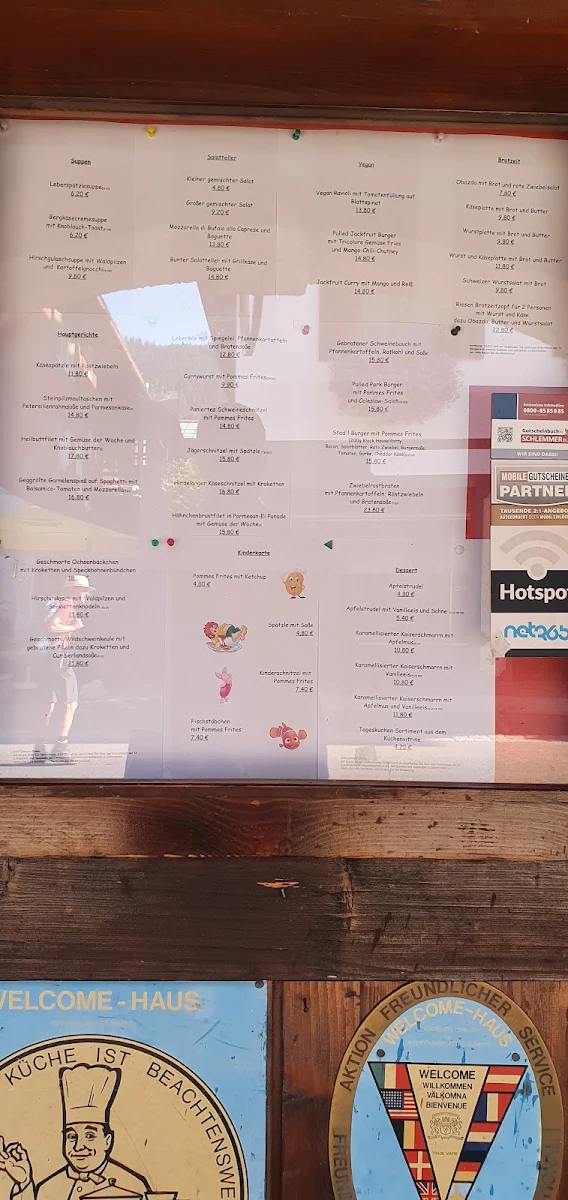 Suppen
Leberspätzlesuppe
6.20 €
Bergkäsecremesuppe
mit Knoblauch-Toast
6.20 €
Hirschgulaschsuppe mit Waldpilzen
und Kartoffelgnocchi
9.80 €
Salatteller
Kleiner gemischter Salat
4.80 €
Großer gemischter Salat
9.20 €
Mozzarella di Bufala alla Caprese und
Baguette
13.80 €
Bunter Salatteller mit Grillkäse und
Baguette
14.80 €
Vegan
Vegan Ravioli mit Tomatenfüllung auf
Blattspinat
13.80 €
Pulled Jackfruit Burger
mit Tricolore Gemüse Fries
und Mango-Chili-Chutney
14.80 €
Jackfruit Curry mit Mango und Reis
14.80 €
Brotzeit
Obazda mit Brot und rote Zwiebelsalat
7.80 €
Käseplatte mit Brot und Butter
9.80 €
Wurstplatte mit Brot und Butter
9.80 €
Wurst und Käseplatte mit Brot und Butter
11.80 €
Schweizer Wurstsalat mit Brot
9.80 €
Riesen Brotzeitzopf für 2 Personen
mit Wurst und Käse,
dazu Obazda, Butter und Wurstsalat
Hauptgerichte
Käsespätzle mit Röstzwiebeln
11.80 €
Steinpilzmaultaschen mit
Petersilienrahmsoße und Parmesankäse
14.80 €
Heilbuttfilet mit Gemüse der Woche und
Knoblauchbutter
17.80 €
Gegrillte Garnelenspieß auf Spaghetti mit
Balsamico-Tomaten und Mozzarella
16.80 €
Leberkäs mit Spiegelei, Pfannenkartoffeln
und Bratensoße
12.80 €
Currywurst mit Pommes Frites
9.90 €
Paniertes Schweineschnitzel
mit Pommes Frites
14.80 €
Jägerschnitzel mit Spätzle
15.80 €
Hindelanger Käseschnitzel mit Kroketten
16.80 €
Hähnchenbrustfilet in Parmesan-Ei Panade
mit Gemüse der Woche
15.80 €
Gebratener Schweinebauch mit
Pfannenkartoffeln, Rotkohl und Soße
15.80 €
Pulled Pork Burger
mit Pommes Frites
und Coleslaw-Salat
15.80 €
Stad'l Burger mit Pommes Frites
15.80 €
Zwiebelrostbraten
mit Pfannenkartoffeln, Röstzwiebeln
und Bratensoße
23.80 €
Geschmorte Ochsenbäckchen
mit Kroketten und Speckbohnenbündchen
Hirschgulasch mit Waldpilzen und
Serviettenknödeln
21.80 €
Geschmorte Wildschweinkeule mit
gebratene Pilzen dazu Kroketten und
Cumberlandsoße
21.80 €
Kinderkarte
Pommes Frites mit Ketchup
4.80 €
Spätzle mit Soße
4.80 €
Kinderschnitzel mit
Pommes Frites
7.40 €
Fischstäbchen
mit Pommes Frites
7.40 €
Dessert
Apfelstrudel
4.30 €
Apfelstrudel mit Vanilleeis und Sahne
5.40 €
Karamellisierter Kaiserschmarrn mit
Apfelmus
10.80 €
Karamellisierter Kaiserschmarrn mit
Vanilleeis
10.80 €
Karamellisierter Kaiserschmarrn mit
Apfelmus und Vanilleeis
11.80 €
Tageskuchen Sortiment aus dem
Kuchenvitrine
0800-85 85 0 85
Gutscheinbuch
SCHLEMMER
WIR SIND DABEI!
MOBILE GUTSCHEINE
PARTNER
TAUSENDE 2:1-ANGEBO
Hotspo
net365
WELCOME-HAUS
KÜCHE IST BEACHTENSWE
AKTION FREUNDLICHER SERVICE
WELCOME-HAUS
WELCOME
WILLKOMMEN
VÄLKOMNA
BIENVENUE
FREU